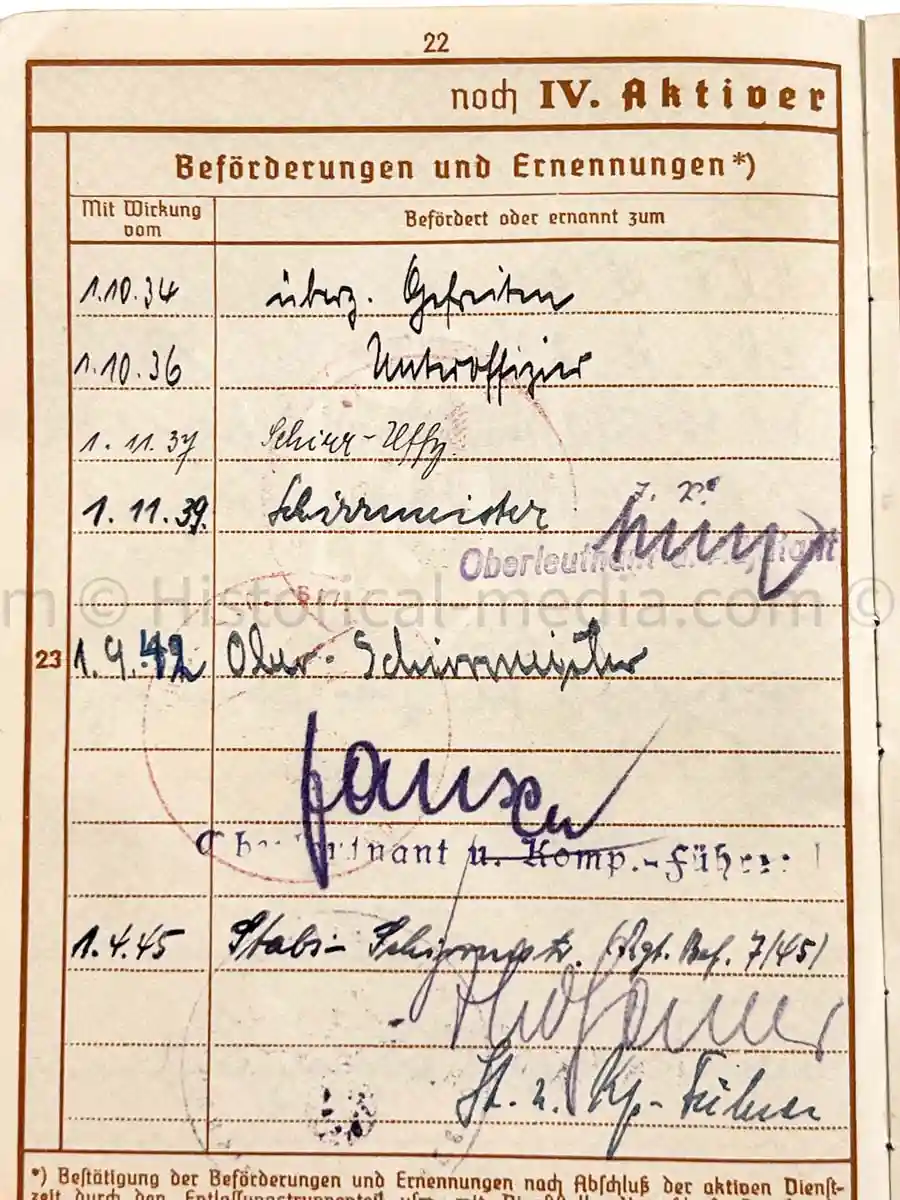 22
noch IV. Aktiver
Beförderungen und Ernennungen*)
Mit Wirkung vom
Befördert oder ernannt zum
1.10.34 überz. Gefreiten
1.10.36 Unteroffizier
1.11.37 Schirr-Uffz.
1.11.39. Schirrmeister
Oberleutnant
© Historical-media.com ©
23 1.9.42 Ober-Schirrmeister
Oberleutnant u. Komp.-Führer
1.4.45 Stabs-Schirrmstr. (Rgt. Bef. 7/45)
Lt. u. Kp.-Führer
*) Bestätigung der Beförderungen und Ernennungen nach Abschluß der aktiven Dienst-
zeit durch den Entlassungstruppenteil